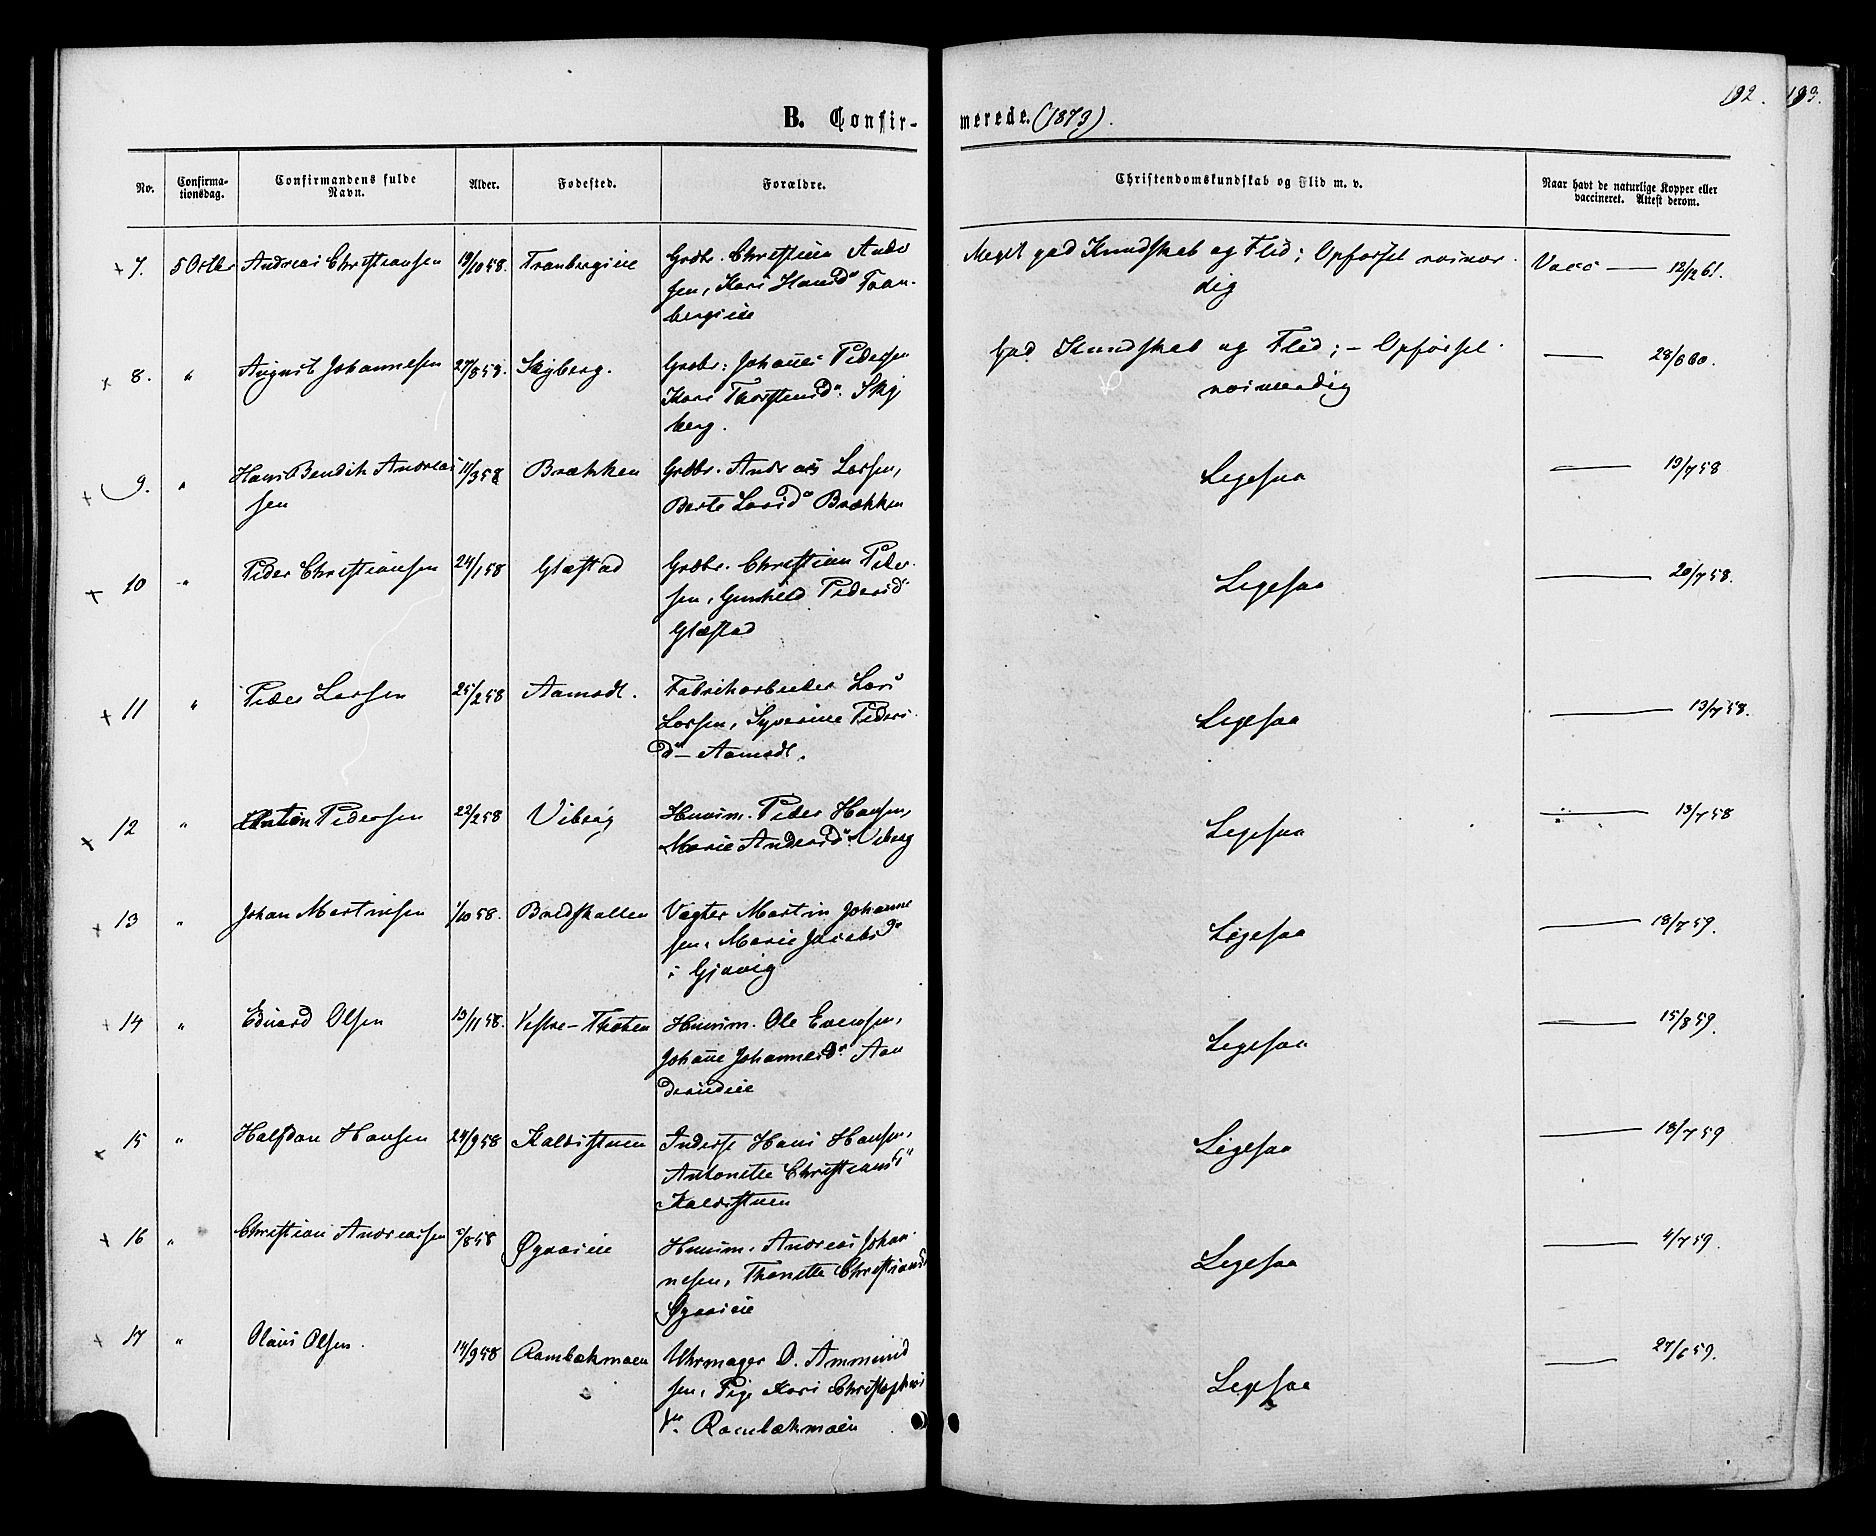 192. 193.
B. Confirmerede. (1873).
No. Confirmationsdag. Confirmandens fulde Navn. Alder. Fødested. Forældre. Christendomskundskab og Flid m. v. Naar havt de naturlige Kopper eller vaccineret. Attest derom.
+ 7. 5 Octbr Andreas Christiansen 19/10 58. Tranbergeie Grdbr. Christian Andersen, Kari Hansd. Tranbergeie Meget god Kundskab og Flid; Opførsel usædvanlig Vacc — 12/12 61.
+ 8. " August Johannesen 27/8 58. Skyberg. Grdbr: Johannes Pedersen Kari Thorstensd. Skyberg. God Kundskab og Flid; – Opførsel — 28/6 60.
+ 9. " Hans Bendik Andreassen 11/3 58 Brækken Grdbr. Andreas Larsen, Berte Larsd. Brækken Ligesaa — 19/7 58
+ 10 " Peder Christiansen 24/1 58 Glæstad Grdbr. Christian Pedersen, Gunhild Pedersd. Glæstad Ligesaa — 20/7 58.
+ 11 " Peder Larsen 25/2 58 Aamodt. Fabrikarbeider Lars Larsen, Syverine Pedersd – Aamodt. Ligesaa — 13/7 58.
+ 12 " Anton Pedersen 22/2 58 Viberg Huusm. Peder Hansen, Marie Andersd. Viberg Ligesaa — 13/7 58
+ 13 " Johan Martinsen 1/10 58. Bredskallen Vægter Martin Johannesen, Marie Jacobsd. i Gjøvig Ligesaa — 18/7 59.
+ 14 " Edvard Olsen 19/11 58. Vestre-Thoten Huusm. Ole Evensen, Johanne Johannesd. Ligesaa — 15/8 59.
+ 15 " Halfdan Hansen 24/9 58 Kaldstuen Inderst Hans Hansen, Antonette Christiansd. Kaldstuen Ligesaa — 18/7 59
+ 16 " Christian Andreassen /8 58 Øgaaseie Huusm. Andreas Johannesen, Thonette Christiansd Øgaaseie Ligesaa — 4/7 59.
+ 17 " Olaus Olsen. 14/9 58 Rambækmoen Uhrmager O. Ammundsen, Pige Kari Christophersd. Rambækmoen Ligesaa — 27/6 59.